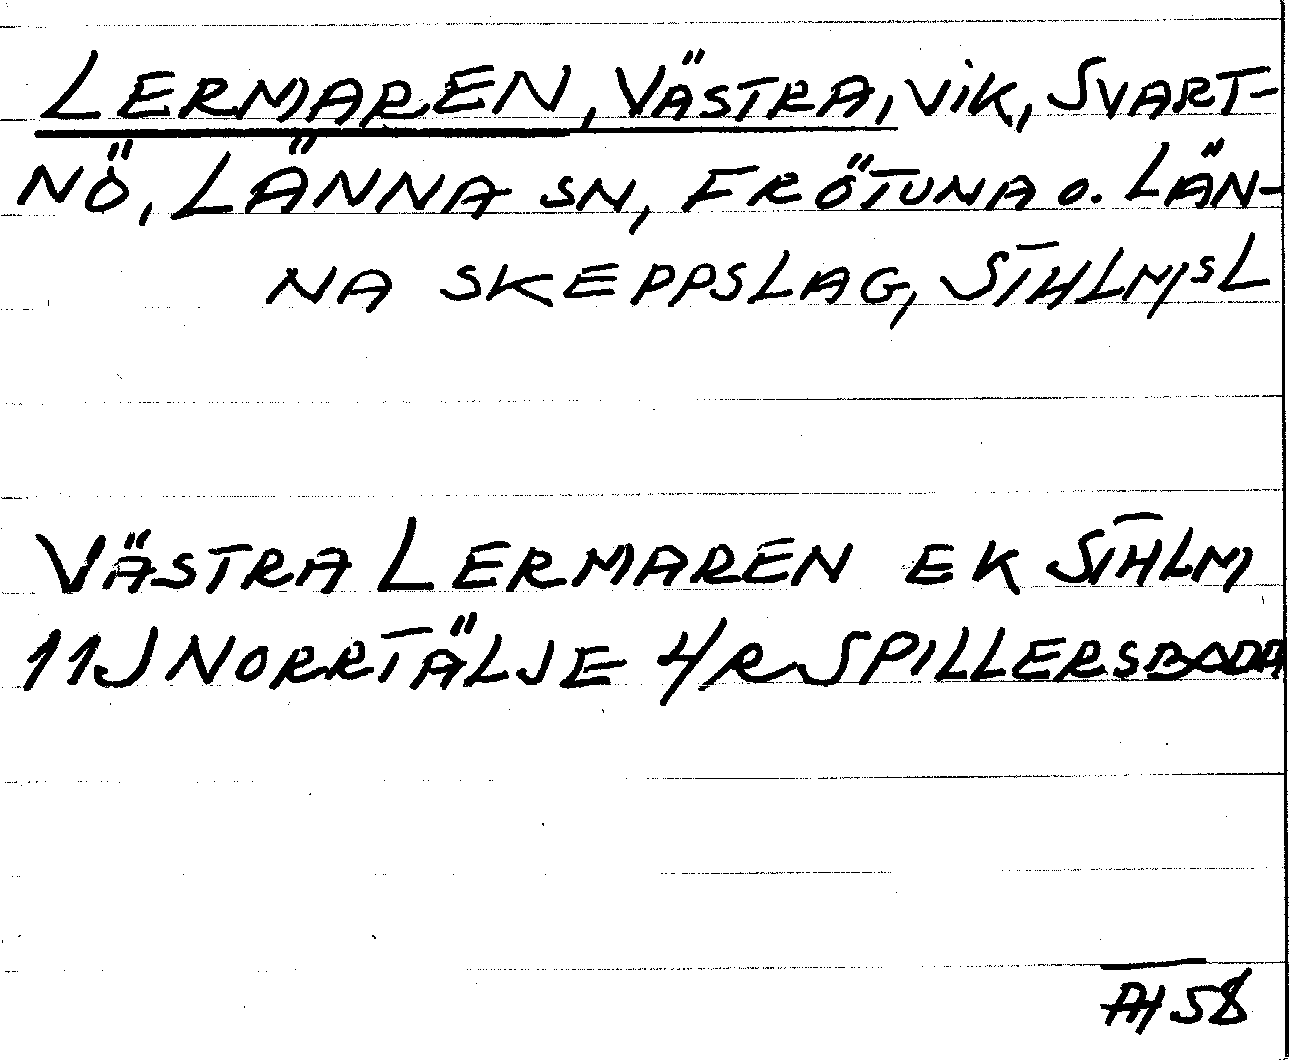 LERMAREN, VÄSTRA, VIK, SVART-
NÖ, LÄNNA SN, FRÖTUNA O. LÄN-
NA SKEPPSLAG, STHLMSL
VÄSTRA LERMAREN EK STHLM
11J NORRTÄLJE 4/R SPILLERSBODA
AH 58